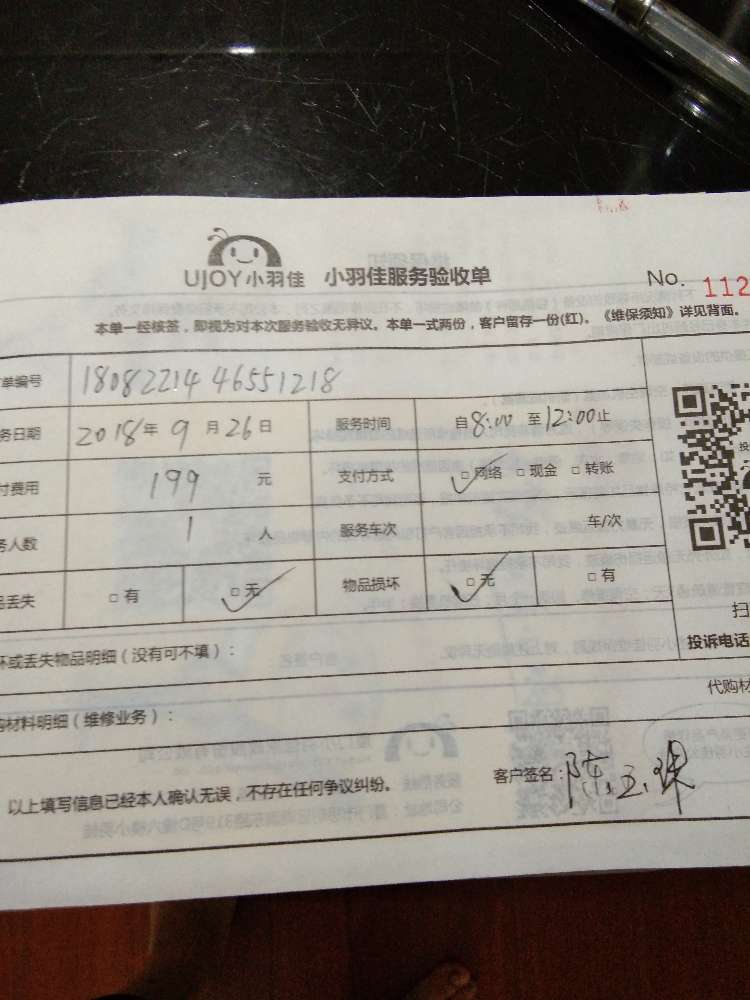 UJOY小羽佳 小羽佳服务验收单 No. 112
本单一经核签，即视为对本次服务验收无异议。本单一式两份，客户留存一份(红)。《维保须知》详见背面。
单编号 18082214 46551218
务日期 2018年 9 月 26 日 服务时间 自 8:00 至 12:00 止
付费用 199 元 支付方式 □ 网络 □ 现金 □ 转账
务人数 1 人 服务车次 车/次
品丢失 □ 有 □ 无 物品损坏 □ 无 □ 有
扫
投诉电话
坏或丢失物品明细（没有可不填）：
代购材
购材料明细（维修业务）：
以上填写信息已经本人确认无误，不存在任何争议纠纷。 客户签名：陈玉珠